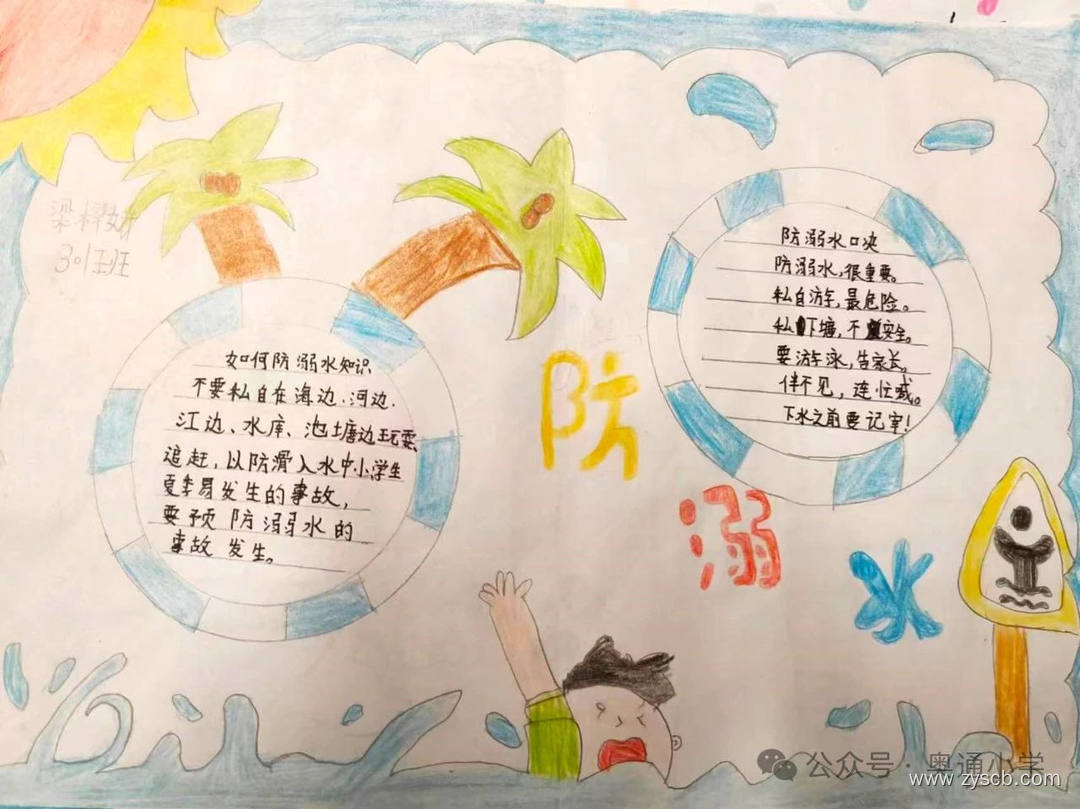 301班
如何防溺水知识
不要私自在海边、河边、
江边、水库、池塘边玩耍、
追赶，以防滑入水中小学生
夏季易发生的事故，
要预防溺水的
事故发生。
防溺水口决
防溺水，很重要。
私自游，最危险。
私下塘，不安全。
要游泳，告家长。
伴不见，连忙喊。
下水之前要记牢！
防
溺
水
公众号·奥通小学
www.zyscb.com